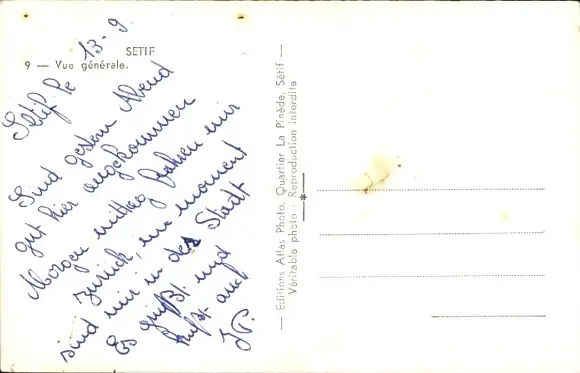 SETIF
9 — Vue générale.
Setif le 13-9
Sind gestern Abend
gut hier angekommen
Morgen mittag fahren wir
zurück, im moment
sind wir in der Stadt
Es grüßt und
küßt auch
— Editions Atlas Photo, Quartier La Pinède, Sétif —
Véritable photo - Reproduction interdite